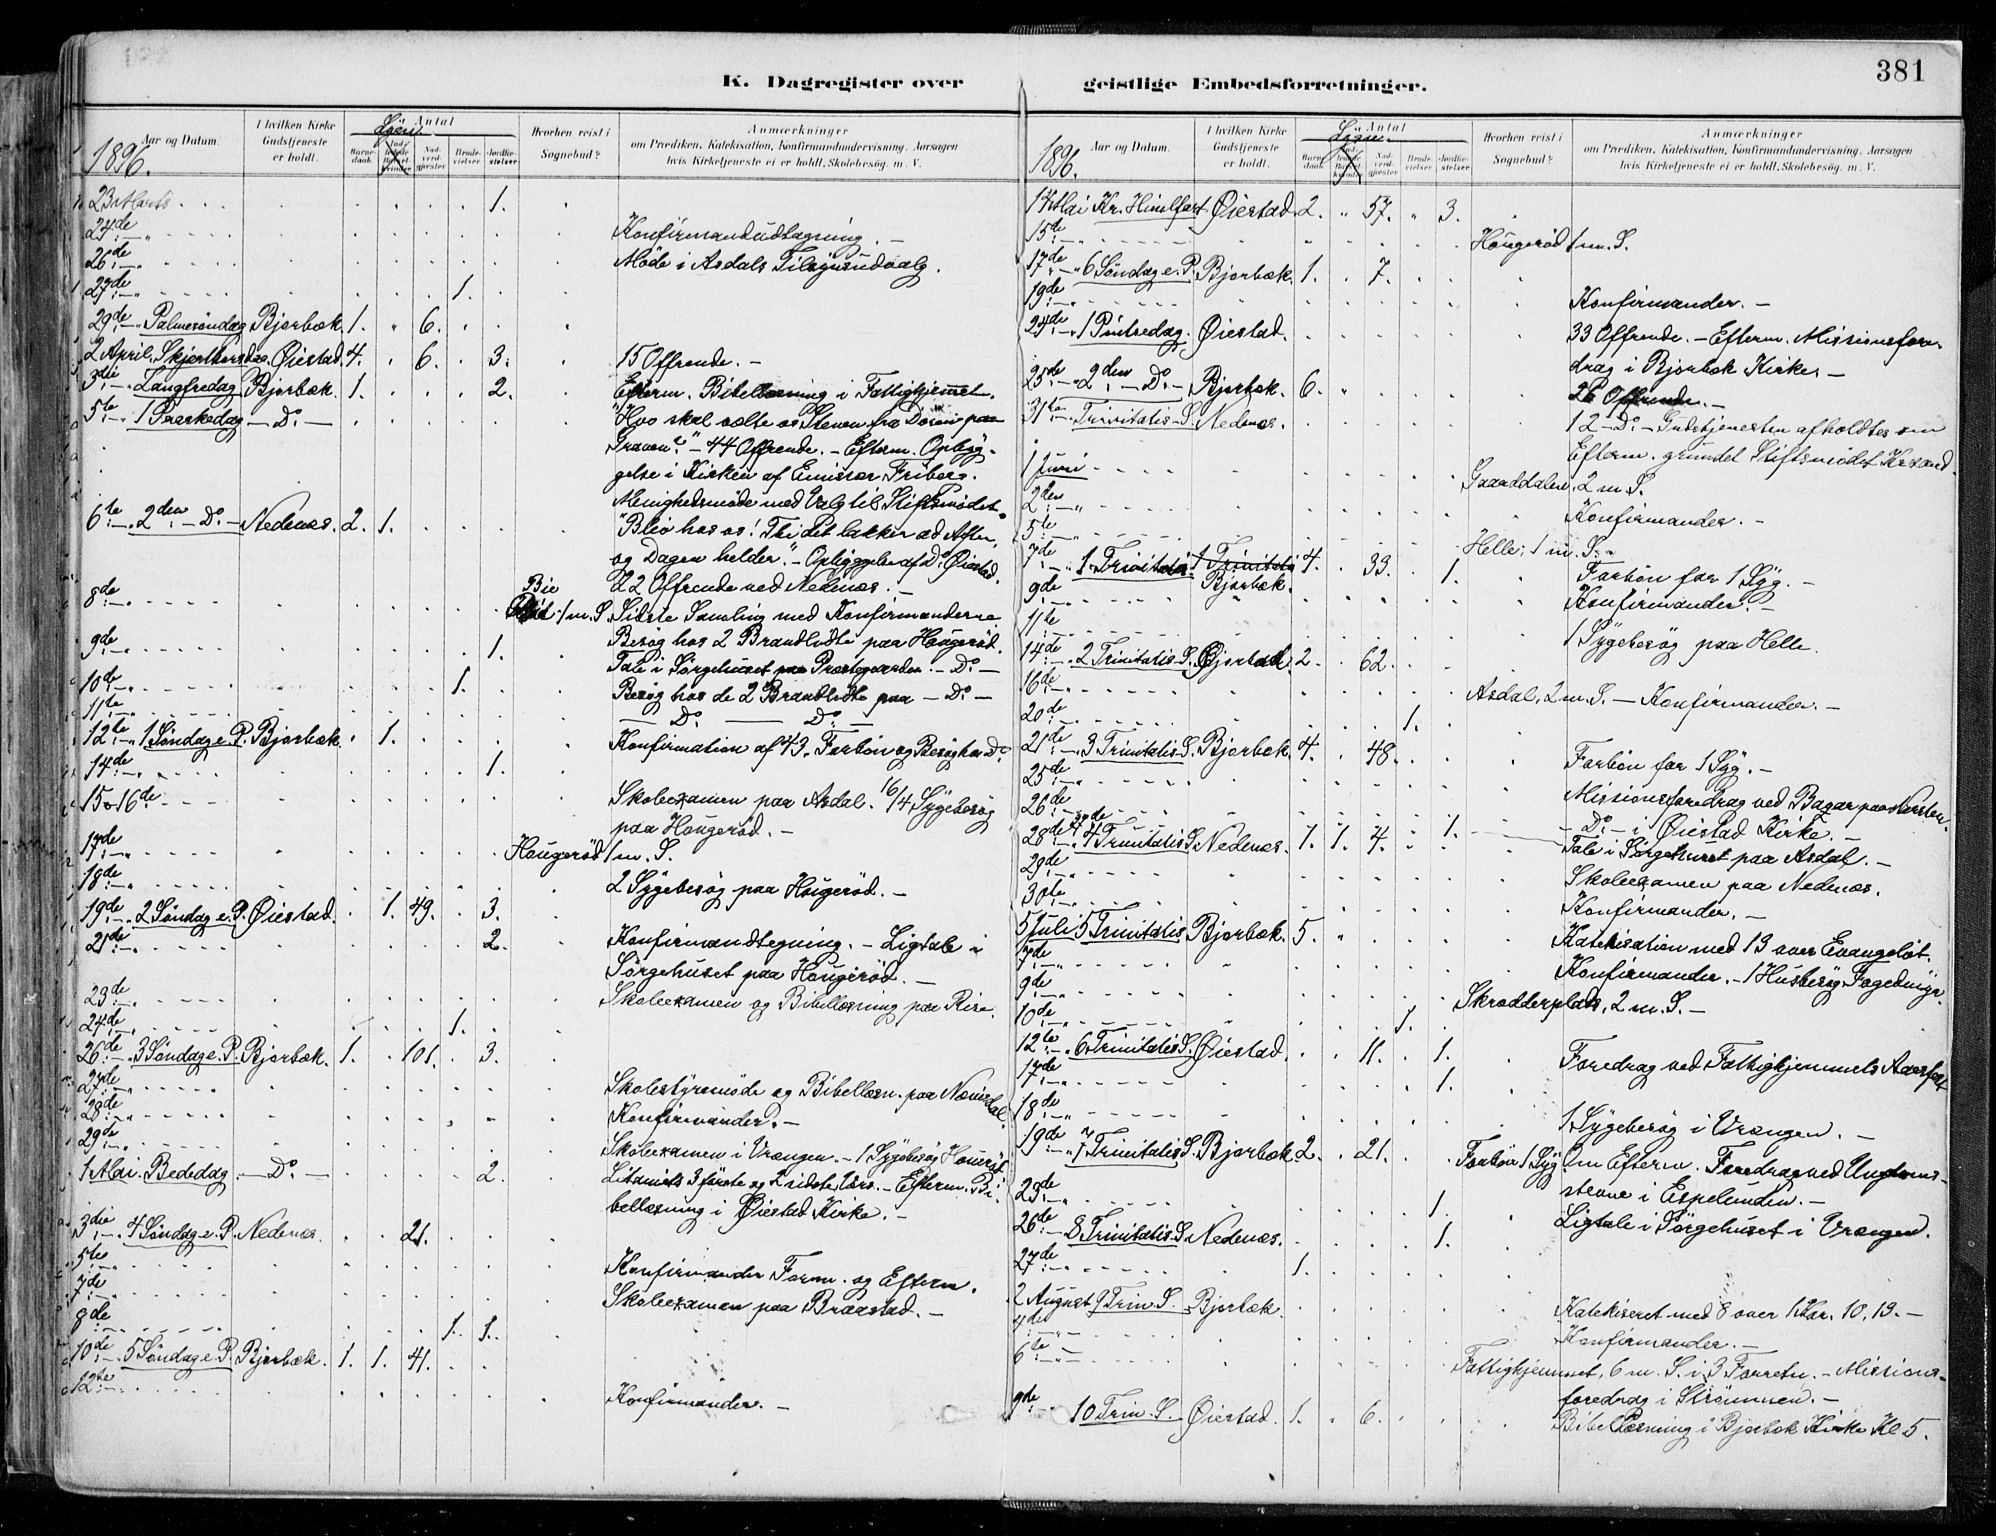 381
K. Dagregister over geistlige Embedsforretninger.
Aar og Datum.
I hvilken Kirke Gudstjeneste er holdt.
Antal
Barne-daab.
Nad-verd-gjester
Brude-vielser
Jordfæ-stelser
Hvorhen reist i Sognebud?
Anmærkninger
om Prædiken, Katekisation, Konfirmandundervisning. Aarsagen
hvis Kirketjeneste ei er holdt. Skolebesøg. m. V.
1896.
23 Marts 1.
24de Konfirmandudtagning. –
26de Møde i Asdals Tilsynsudvalg.
27de 1.
29de Palmesøndag Bjorbæk. 1. 6.
2 April. Skjærthorsdag. Øiestad. 4. 6. 3. 15 Offrende. –
3die Langfredag Bjorbæk 1. 2. Efterm. Bibellæsning i Fattighjemmet.
5te 1 Paaskedag – Do – "Hvo skal vælte os Stenen fra Døren paa
Graven?" – 44 Offrende. – Efterm. Opbyg-
gelse i Kirken af Emissær Friberg.
Menighedsmøde med Valg til Stiftsmødet.
6te 2den – Do – Nedenæs. 2. 1. "Bliv hos os! Thi det lakker ad Aften,
og Dagen helder." – Opbyggelse af Do. Øiestad.
22 Offrende ved Nedenæs. –
8de Bie 1 m. S. Sidste Samling med Konfirmanderne.
9de 1. Besøg hos 2 Brandlidte paa Hougerød.
Tale i Sørgehuset paa Præstegaarden. – Do –
10de 1. Besøg hos de 2 Brandlidte paa – Do –
11te — Do — Do —
12te 1 Søndag e. P. Bjorbæk. 1. Konfirmation af 43. Forbøn og Besøg hos Do.
14de 1.
15 & 16de Skoleexamen paa Asdal. 16/4 Sygebesøg
paa Hougerød. –
17de Hougerød 1 m. S.
18de 2 Sygebesøg paa Hougerød. –
19de 2 Søndag e. P. Øiestad. 1. 49. 3.
21de 2. Konfirmandtegning. – Ligtale i
Sørgehuset paa Hougerød. –
23de Skoleexamen og Bibellæsning paa Rise.
24de 1.
26de 3 Søndag e. P. Bjorbæk. 1. 101. 3.
27de Skolestyremøde og Bibellæsn. paa
28de Konfirmander. –
29de Skoleexamen i Vrængen. – 1 Sygebesøg
1 Mai. Bededag. – Do – 2. Litaniets 3 første og 2 sidste Vers. – Efterm. Bi-
bellæsning i Øiestad Kirke. –
3die 4 Søndag e. P. Nedenæs. 21.
5te Konfirmander Form. og Efterm.
7de Skoleexamen paa Braastad. –
8de 1. 1.
10de 5 Søndag e. P. Bjorbæk. 1. 1. 41.
12te Konfirmander. –
Aar og Datum.
I hvilken Kirke Gudstjeneste er holdt.
Antal
Barne-daab.
Nad-verd-gjester
Brude-vielser
Jordfæ-stelser
Hvorhen reist i Sognebud?
Anmærkninger
om Prædiken, Katekisation, Konfirmandundervisning. Aarsagen
hvis Kirketjeneste ei er holdt. Skolebesøg. m. V.
1896.
14 Mai Kr. Himelfart Øiestad 2. 57. 3.
15de Hougerød 1 m. S.
17de 6 Søndag e. P. Bjorbæk. 1. 7.
19de Konfirmander. –
24de 1 Pintsedag. Øiestad. 33 Offrende. – Efterm. Missionsfore-
drag i Bjorbæk Kirke. –
25de 2den – Do – Bjorbæk. 6. 26 Offrende. –
31te Trinitatis S. Nedenæs. 12 – Do – Gudstjenesten afholdtes om
Efterm. grundet Stiftsmødet Krsand.
1 Juni Gaarddalen, 2 m. S.
2den Konfirmander. –
5te Helle, 1 m. S. –
7de 1 Trinitatis Bjorbæk. 4. 33. 1. Forbøn for 1 Syg. –
9de Konfirmander. –
11te 1 Sygebesøg paa Helle.
14de 2 Trinitatis S. 2. 62.
16de Asdal, 2 m. S. – Konfirmander. –
20de 1.
21de 3 Trinitatis S. Bjorbæk. 4. 48. Forbøn for 1 Syg. –
25de Missionsforedrag ved
26de – Do – i Øiestad Kirke. –
28de 4 Trinitatis S. Nedenæs. 1. 1. 4. 1. Tale i Sørgehuset paa Asdal. –
29de Skoleexamen paa Nedenæs.
30te Konfirmander. –
5 Juli 5 Trinitatis Bjorbæk. 5. Katekisation med 13 over Evangeliet.
7de Konfirmander. – 1 Husbesøg Fogedmyr.
9de Skrædderplads, 2 m. S. –
10de 1.
12te 6 Trinitatis S. Øiestad. 11. 1. Foredrag ved Fattighjemmets Aarsfest
17de 1.
18de 1 Sygebesøg i Vrængen. –
19de 7 Trinitatis S. Bjorbæk. 2. 21. Forbøn 1 Syg Om Efterm. Foredrag ved Ungdoms-
stevne i Espelunden. –
23de 1. Ligtale i Sørgehuset i Vrængen.
26de 8 Trinitatis S. Nedenæs. 1.
27de 1.
2 August 9 Trin. S. Bjorbæk. Katekiseret med 8 over 1 Kor. 10, 13. –
4de Konfirmander. –
6te Fattighjemmet, 6 m. S. i 3 Forretn. – Missions-
foredrag i Strømmen. –
9de 10 Trin. S. Øiestad. 1. 6. Bibellæsning i Bjorbæk Kirke Kl 5.